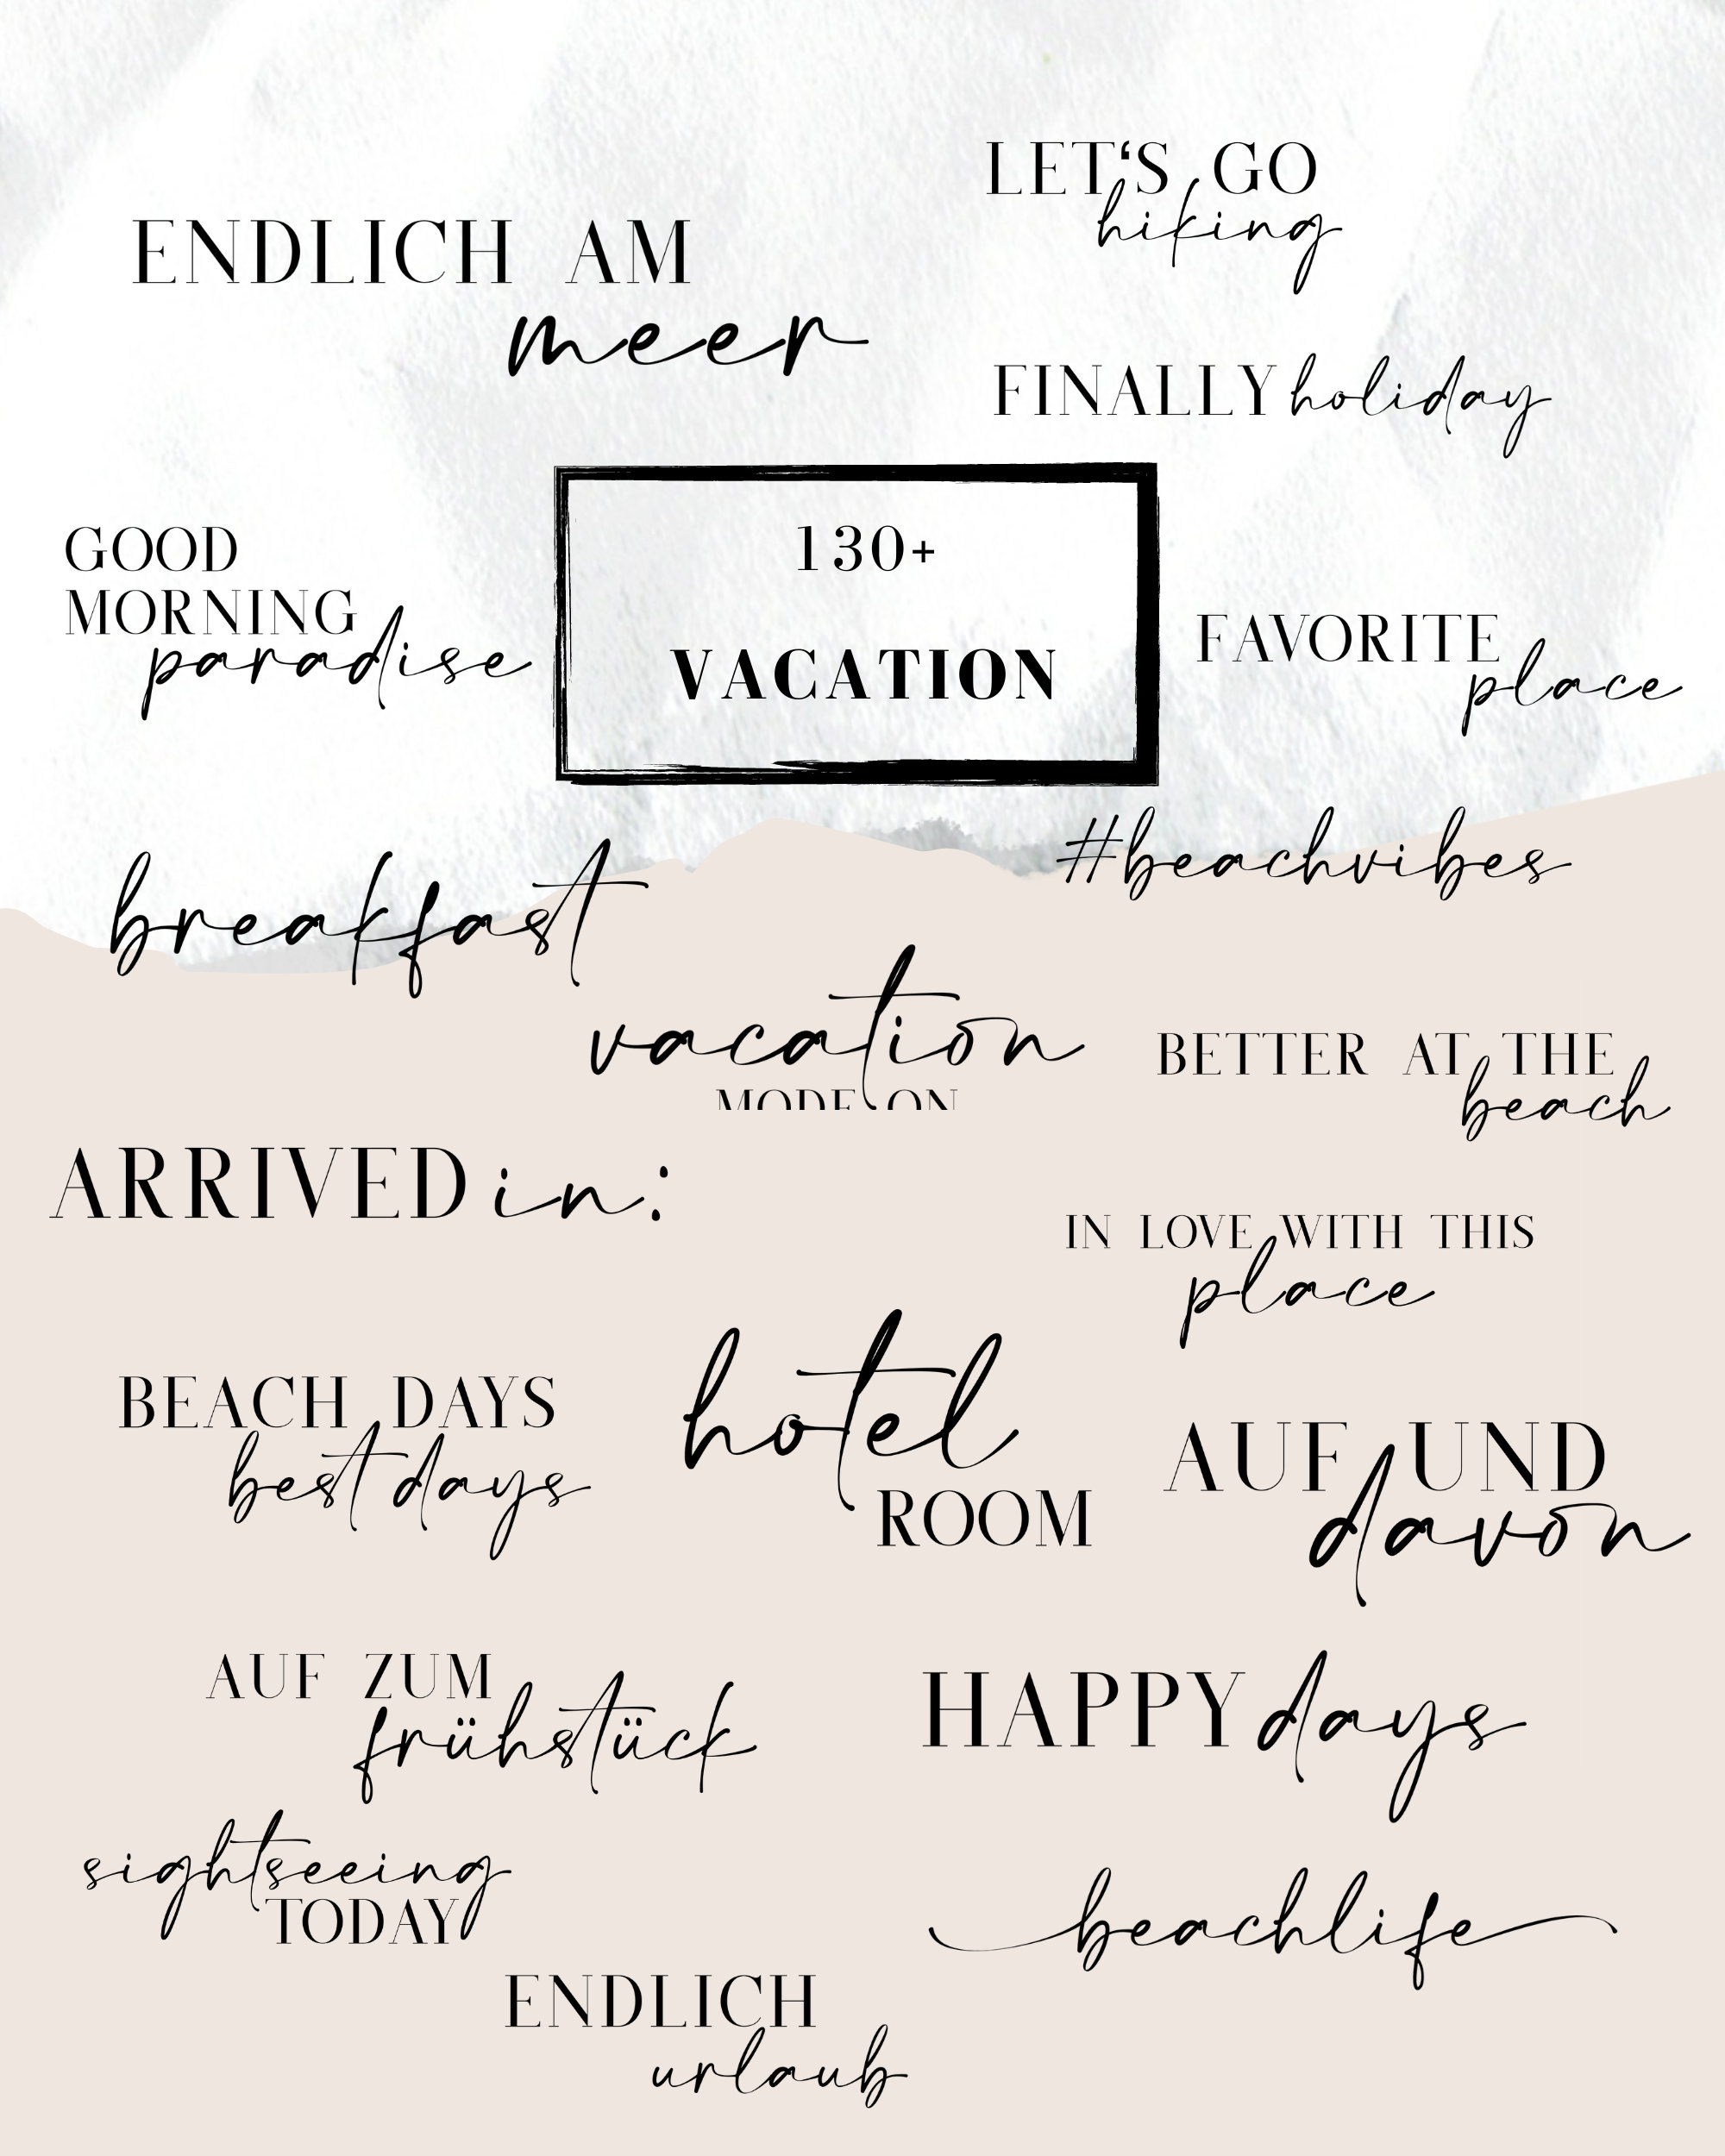 LET‘S GO
hiking
ENDLICH AM
meer
FINALLY holiday
130+
VACATION
GOOD
MORNING
paradise
FAVORITE
place
#beachvibes
breakfast
vacation
MODE ON
BETTER AT THE
beach
ARRIVED in:
IN LOVE WITH THIS
place
BEACH DAYS
best days
hotel
ROOM
AUF UND
davon
AUF ZUM
frühstück
HAPPY days
sightseeing
TODAY
beachlife
ENDLICH
urlaub